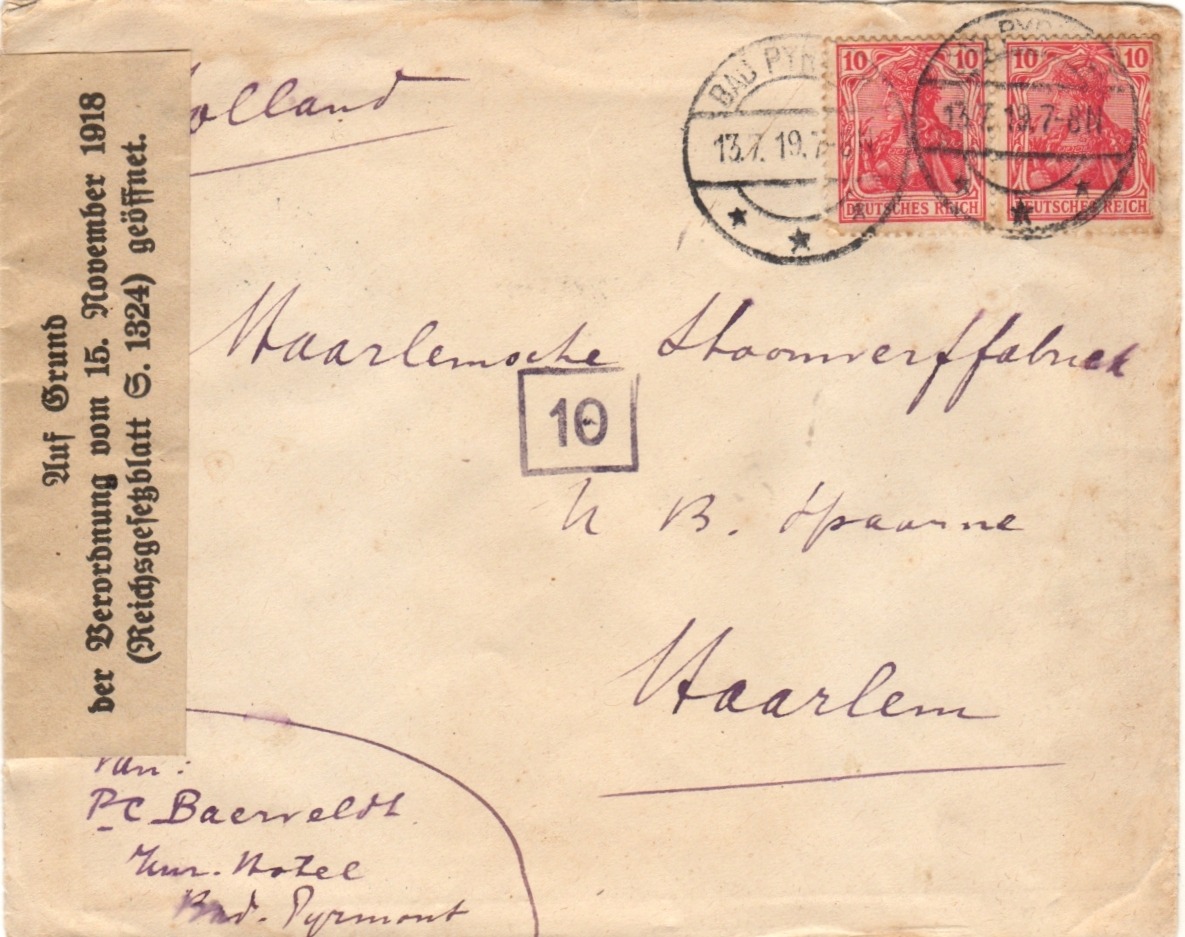 Auf Grund
der Verordnung vom 15. November 1918
(Reichsgesetzblatt S. 1324) geöffnet.
olland
BAD PYR
13.7. 19. 7-8N
PYR
13.7. 19. 7-8N
10 10
DEUTSCHES REICH
10 10
DEUTSCHES REICH
Haarlemsche Stoomverffabriek
10
N B. Spaarne
Haarlem
van:
P.C. Baerveldt
Kur-Hotel
Bad-Pyrmont